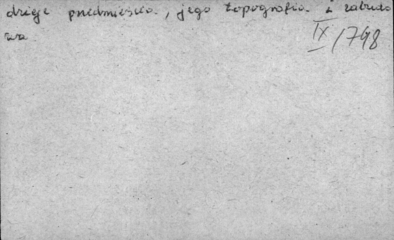 drogi przedmieścia, jego topografia i zabudo
wa
IX/748